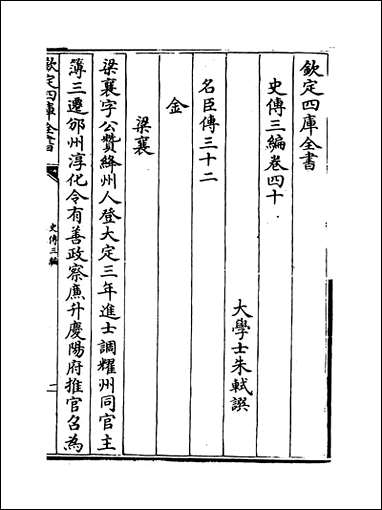 欽定四庫全書
史傳三編卷四十
大學士朱軾撰
名臣傳三十二
金
梁襄
梁襄字公贊絳州人登大定三年進士調耀州同官主
簿三遷邠州淳化令有善政察廉升慶陽府推官召為
欽定四庫全書
史傳三編